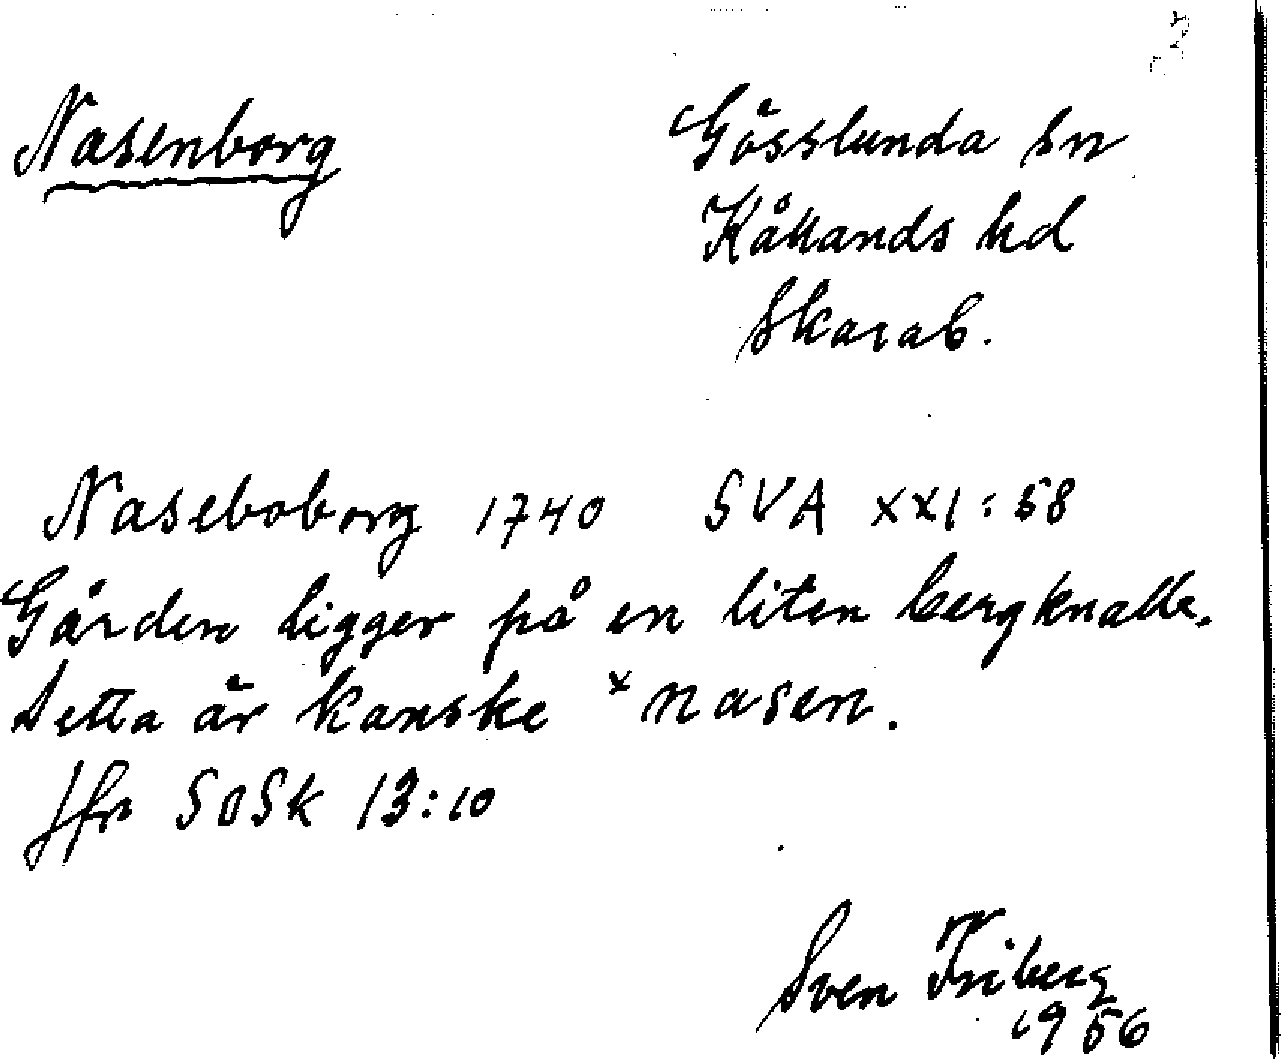 Nasenborg
Gösslunda sn
Kållands hd
Skarab.
Naseboborg 1740 SVA XXI:58
Gården ligger på en liten bergknalle.
Detta är kanske ˣnasen.
Jfr SOSk 13:10
Sven Friberg
1956